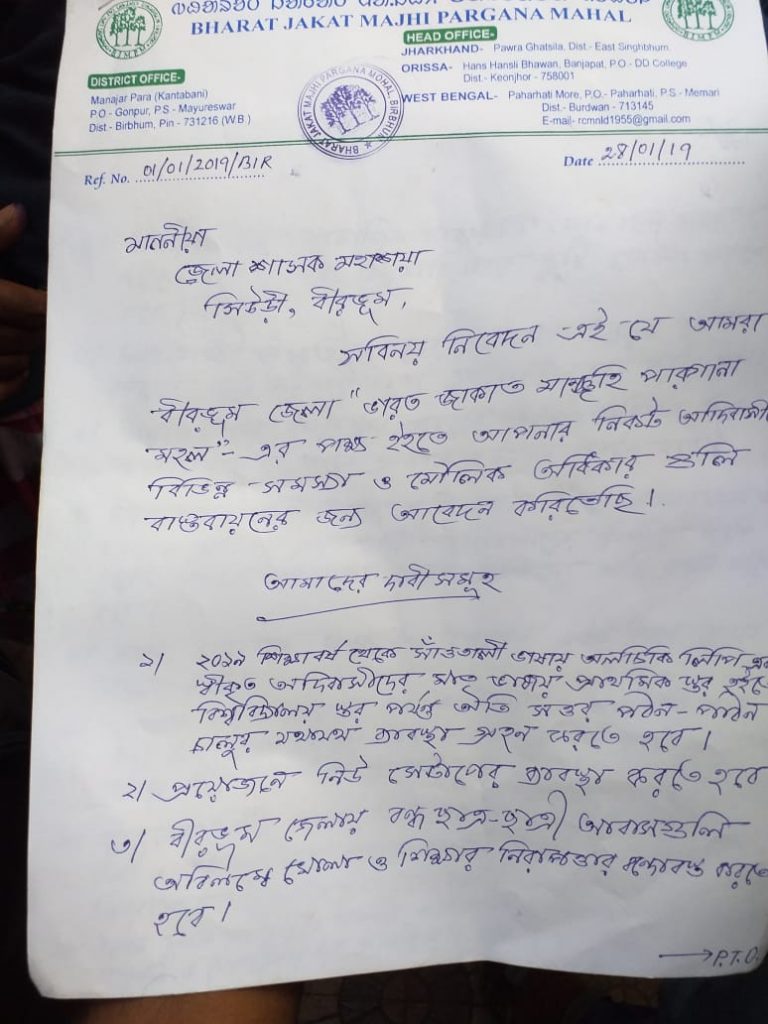 BHARAT JAKAT MAJHI PARGANA MAHAL
DISTRICT OFFICE-
Manajar Para (Kantabani)
P.O - Gonpur, P.S - Mayureswar
Dist - Birbhum, Pin - 731216 (W.B.)
BHARAT JAKAT MAJHI PARGANA MOHAL, BIRBHUM
HEAD OFFICE-
JHARKHAND- Pawra Ghatsila, Dist.- East Singhbhum.
ORISSA- Hans Hansli Bhawan, Banjapat, P.O.- DD College
Dist.- Keonjhor - 758001
WEST BENGAL- Paharhati More, P.O.- Paharhati, P.S - Memari
Dist.- Burdwan - 713145
E-mail- rcmnld1955@gmail.com
Ref. No. 01/01/2019/BIR
Date 28/01/19
মাননীয়া
জেলা শাসক মহাশয়া
সিউড়ী, বীরভূম,
সবিনয় নিবেদন এই যে আমরা
বীরভূম জেলা "ভারত জাকাত মাঝি পারগানা
মহল"- এর পক্ষ হইতে আপনার নিকট আদিবাসী
বিভিন্ন সমস্যা ও মৌলিক অধিকার গুলি
বাস্তবায়নের জন্য আবেদন করিতেছি।
আমাদের দাবীসমূহ
১) ২০১৯ শিক্ষাবর্ষ থেকে সাঁওতালী ভাষায় অলচিকি লিপি
স্বীকৃত আদিবাসীদের মাতৃ ভাষায় প্রাথমিক স্তর হইতে
বিশ্ববিদ্যালয় স্তর পর্যন্ত অতি সত্তর পঠন-পাঠন
চালুর যথাযথ ব্যবস্থা গ্রহন করতে হবে।
২) প্রয়োজনে নিউ সেটাপের ব্যবস্থা করতে হবে
৩) বীরভূম জেলায় বন্ধ ছাত্র-ছাত্রী আবাসগুলি
অবিলম্বে খোলা ও শিক্ষার নিরাপত্তার বন্দোবস্ত করতে
হবে।
→ P.T.O.